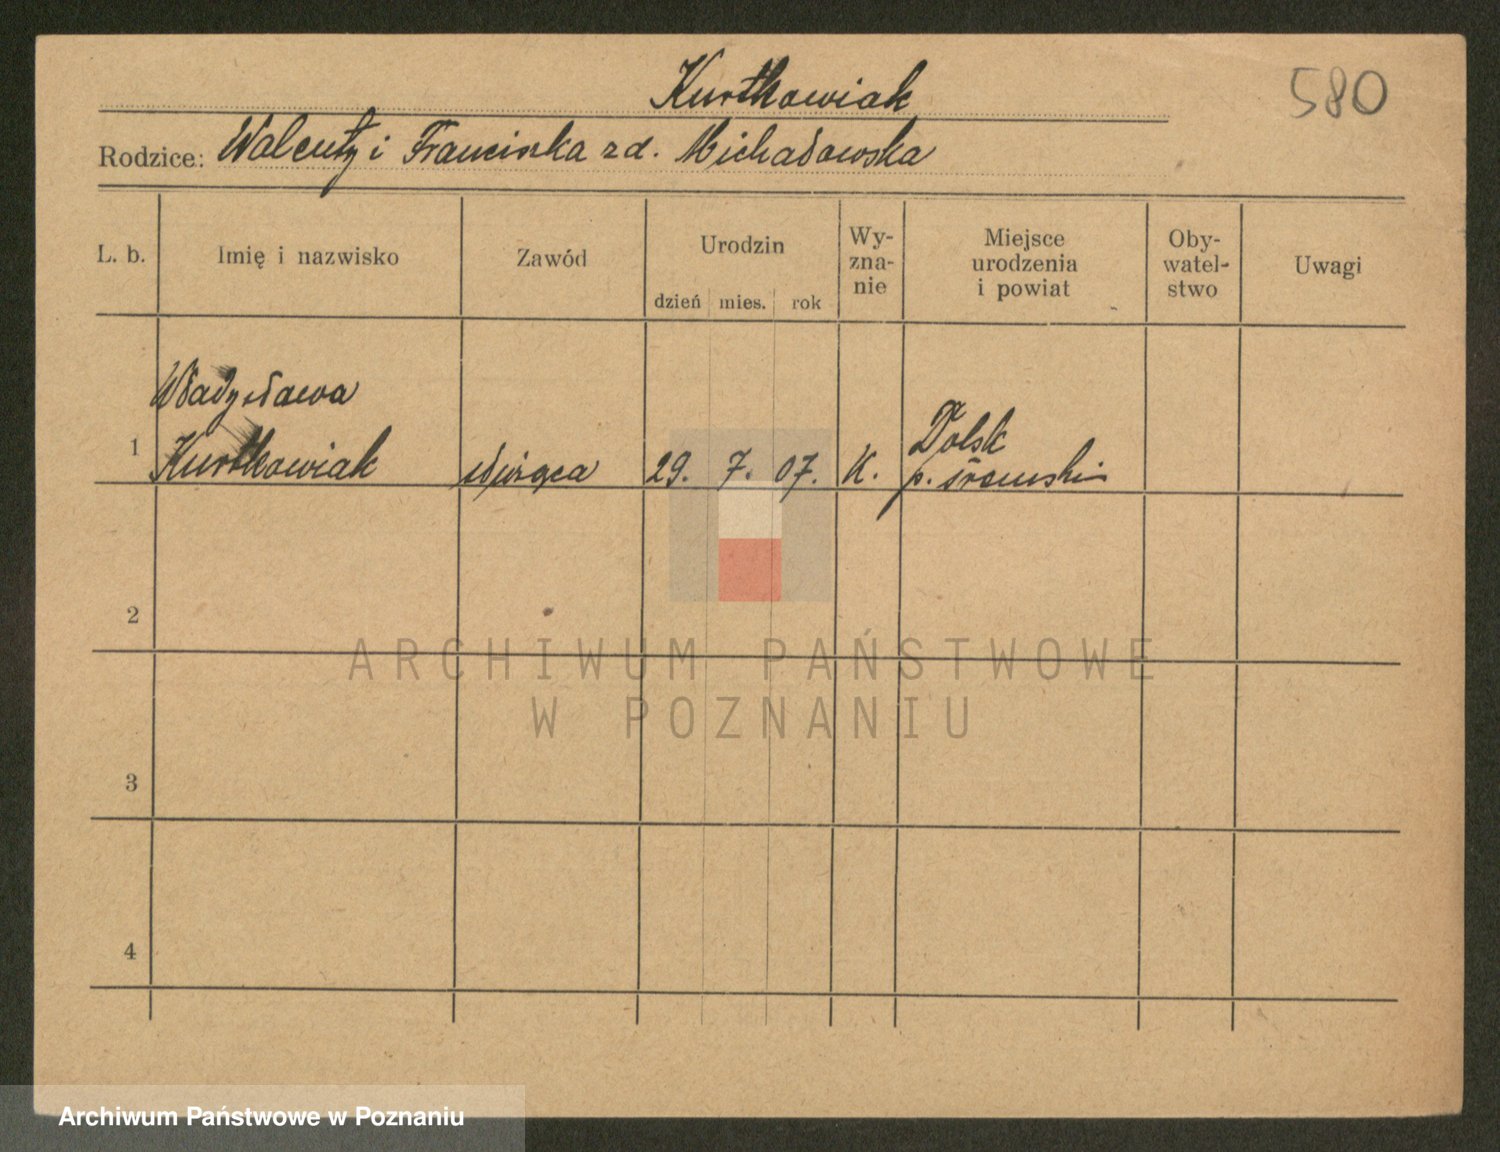 Kurtkowiak
580
Rodzice: Walenty i Franciszka z d. Michałowska
L. b.
Imię i nazwisko
Zawód
Urodzin
dzień mies. rok
Wy-
zna-
nie
Miejsce
urodzenia
i powiat
Oby-
watel-
stwo
Uwagi
1
Władysława
Kurtkowiak
służąca
29. 7. 07.
K.
Dolsk
p. śremski
2
3
4
ARCHIWUM PAŃSTWOWE
W POZNANIU
Archiwum Państwowe w Poznaniu